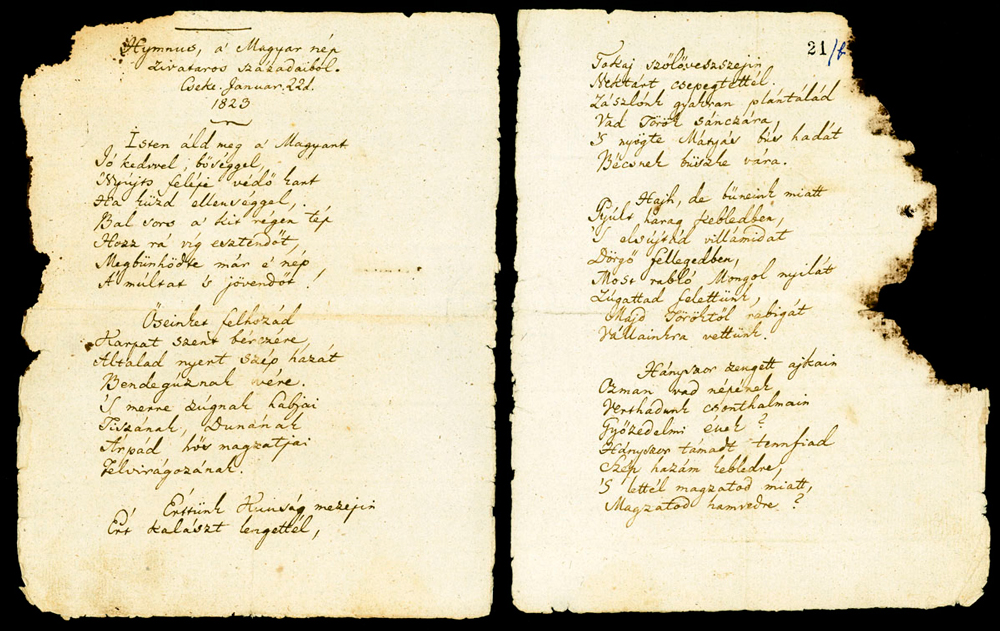 Hymnus, a' Magyar nép
zivataros századaiból.
Cseke. Januar. 22d.
1823
Isten áld meg a' Magyart
Jó kedvvel, bőséggel,
Nyújts feléje védő kart
Ha küzd ellenséggel,
Bal sors a' kit régen tép
Hozz rá víg esztendőt,
Megbűnhödte már e' nép
A' múltat 's jövendőt!
Őseinket felhozád
Kárpát szent bérczére,
Általad nyert szép hazát
Bendegúznak vére.
'S merre zúgnak habjai
Tiszának, Dunának
Árpád hős magzatjai
Felvirágozának.
Értünk Kunság mezején
Ért kalászt lengettél,
21/b
Tokaj szőlőveszszejin
Nektárt csepegtettél.
Zászlónk gyakran plántálád
Vad Török sánczára,
'S nyögte Mátyás bús hadát
Bécsnek büszke vára.
Hajh, de bűneink miatt
Gyúlt harag kebledben,
'S elsújtád villámidat
Dörgő fellegedben,
Most rabló Mongol nyilát
Zúgattad felettünk,
Majd Töröktől rabigát
Vállainkra vettünk.
Hányszor zengett ajkain
Ozman vad népének
Vert hadunk csonthalmain
Győzedelmi ének?
Hányszor támadt tennfiad
Szép hazám kebledre,
'S lettél magzatod miatt,
Magzatod hamvedre?